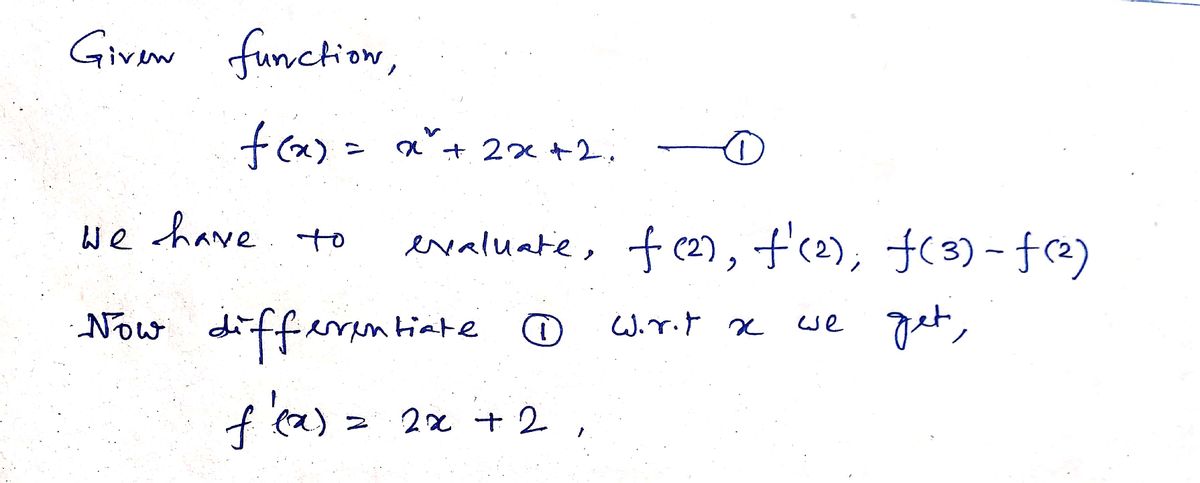 Given function,
f(x) = x² + 2x + 2. —①
We have to evaluate, f(2), f'(2), f(3) - f(2)
Now differentiate ① w.r.t x we get,
f'(x) = 2x + 2,